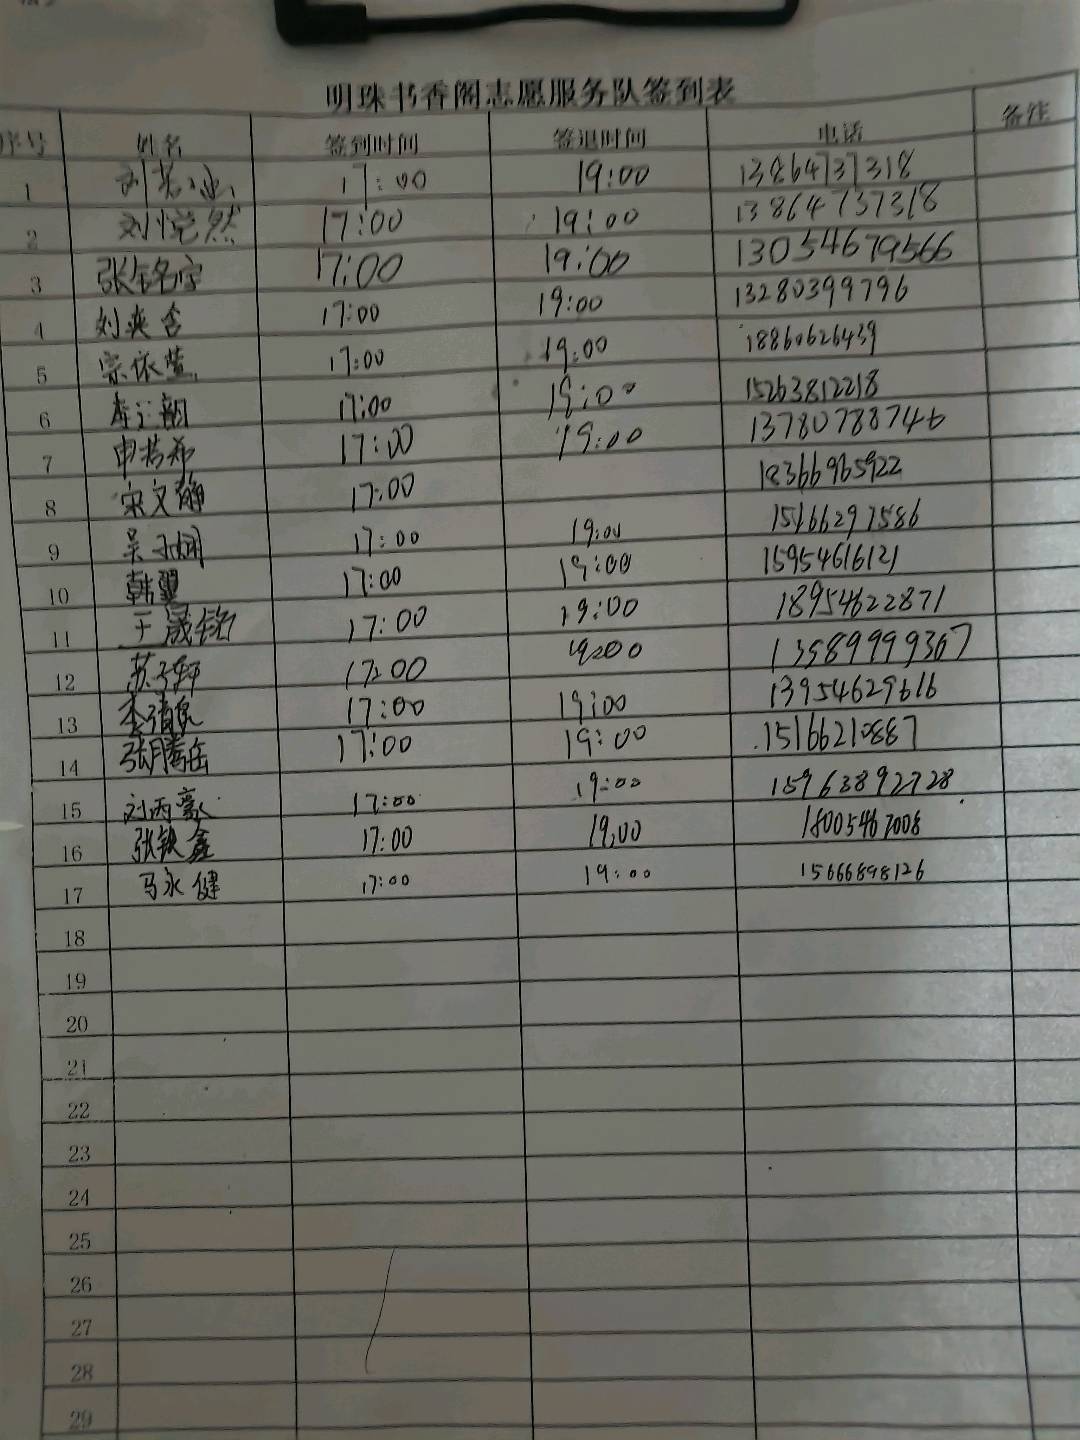 明珠书香阁志愿服务队签到表
序号 姓名 签到时间 签退时间 电话 备注
1 刘若冰 17:00 19:00 13864737318
2 刘悦然 17:00 19:00 13864737318
3 张铭宇 17:00 19:00 13054679566
4 刘爽含 17:00 19:00 13280399796
5 宗依萱 17:00 19:00 18860626439
6 17:00 19:00 15263812218
7 申若希 17:00 19:00 13780788746
8 宋文静 17:00 18366965922
9 吴子娴 17:00 19:00 15166297586
10 韩翼 17:00 19:00 15954616121
11 王晟铭 17:00 19:00 18954622871
12 苏子轩 17:00 19:00 13589999367
13 李清泉 17:00 19:00 13954629616
14 张腾岳 17:00 19:00 15166210887
15 刘丙豪 17:00 19:00 15963892728
16 张铁鑫 17:00 19:00 18005467008
17 马永健 17:00 19:00 15666898126
18
19
20
21
22
23
24
25
26
27
28
29